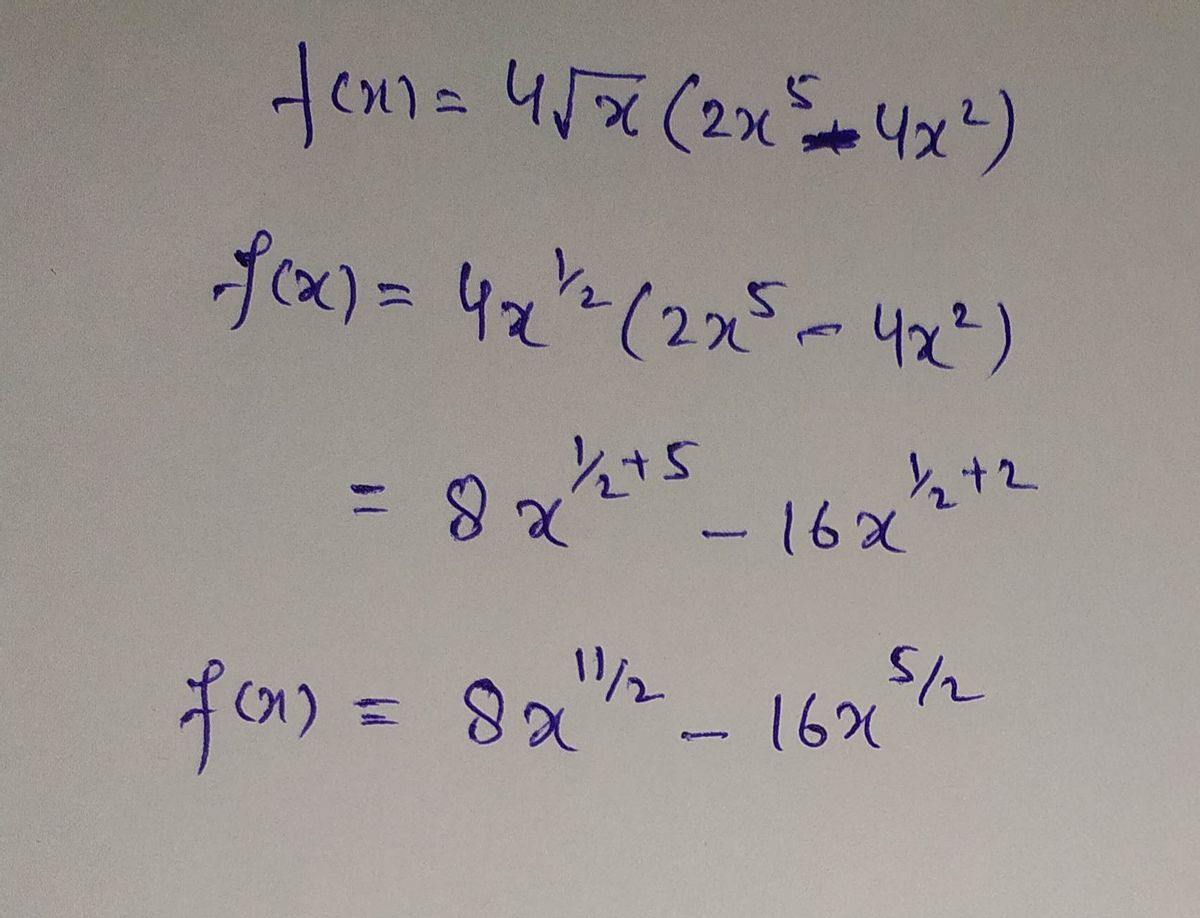 f(x) = 4√x (2x⁵ - 4x²)
f(x) = 4x^(1/2) (2x⁵ - 4x²)
= 8x^(1/2+5) - 16x^(1/2+2)
f(x) = 8x^(11/2) - 16x^(5/2)